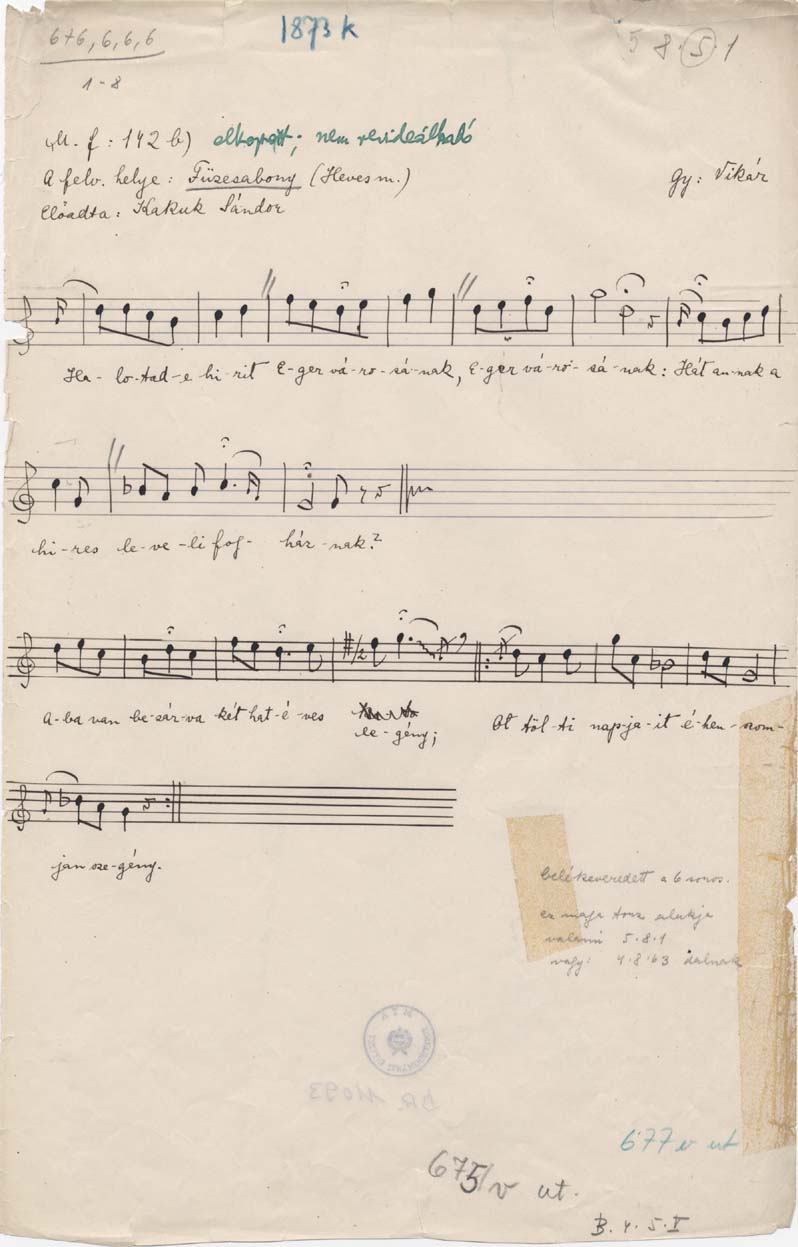 6+6, 6, 6, 6
1873 k
5 8·5·1
1-8
M. f: 142 b) elkopott; nem revideálható
A felv. helye: Füzesabony (Heves m.)
gy: Vikár
Előadta: Kakuk Sándor
Ha-lo-tad-e hi-rit E-ger vá-ro-sá-nak, E-ger vá-ro-sá-nak: Hát an-nak a
hi-res le-ve-li fog-ház-nak?
A-ba van be-zár-va két hat-é-ves
le-gény;
Ot töl-ti nap-ja-it é-hen-szom-
jan sze-gény.
belékeveredett a 6 soros.
ez maga torz alakja
valami 5·8·1
vagy: 4·8·63 dalnak
BR 11093
677 v ut
675/v ut.
B. 4. 5. I